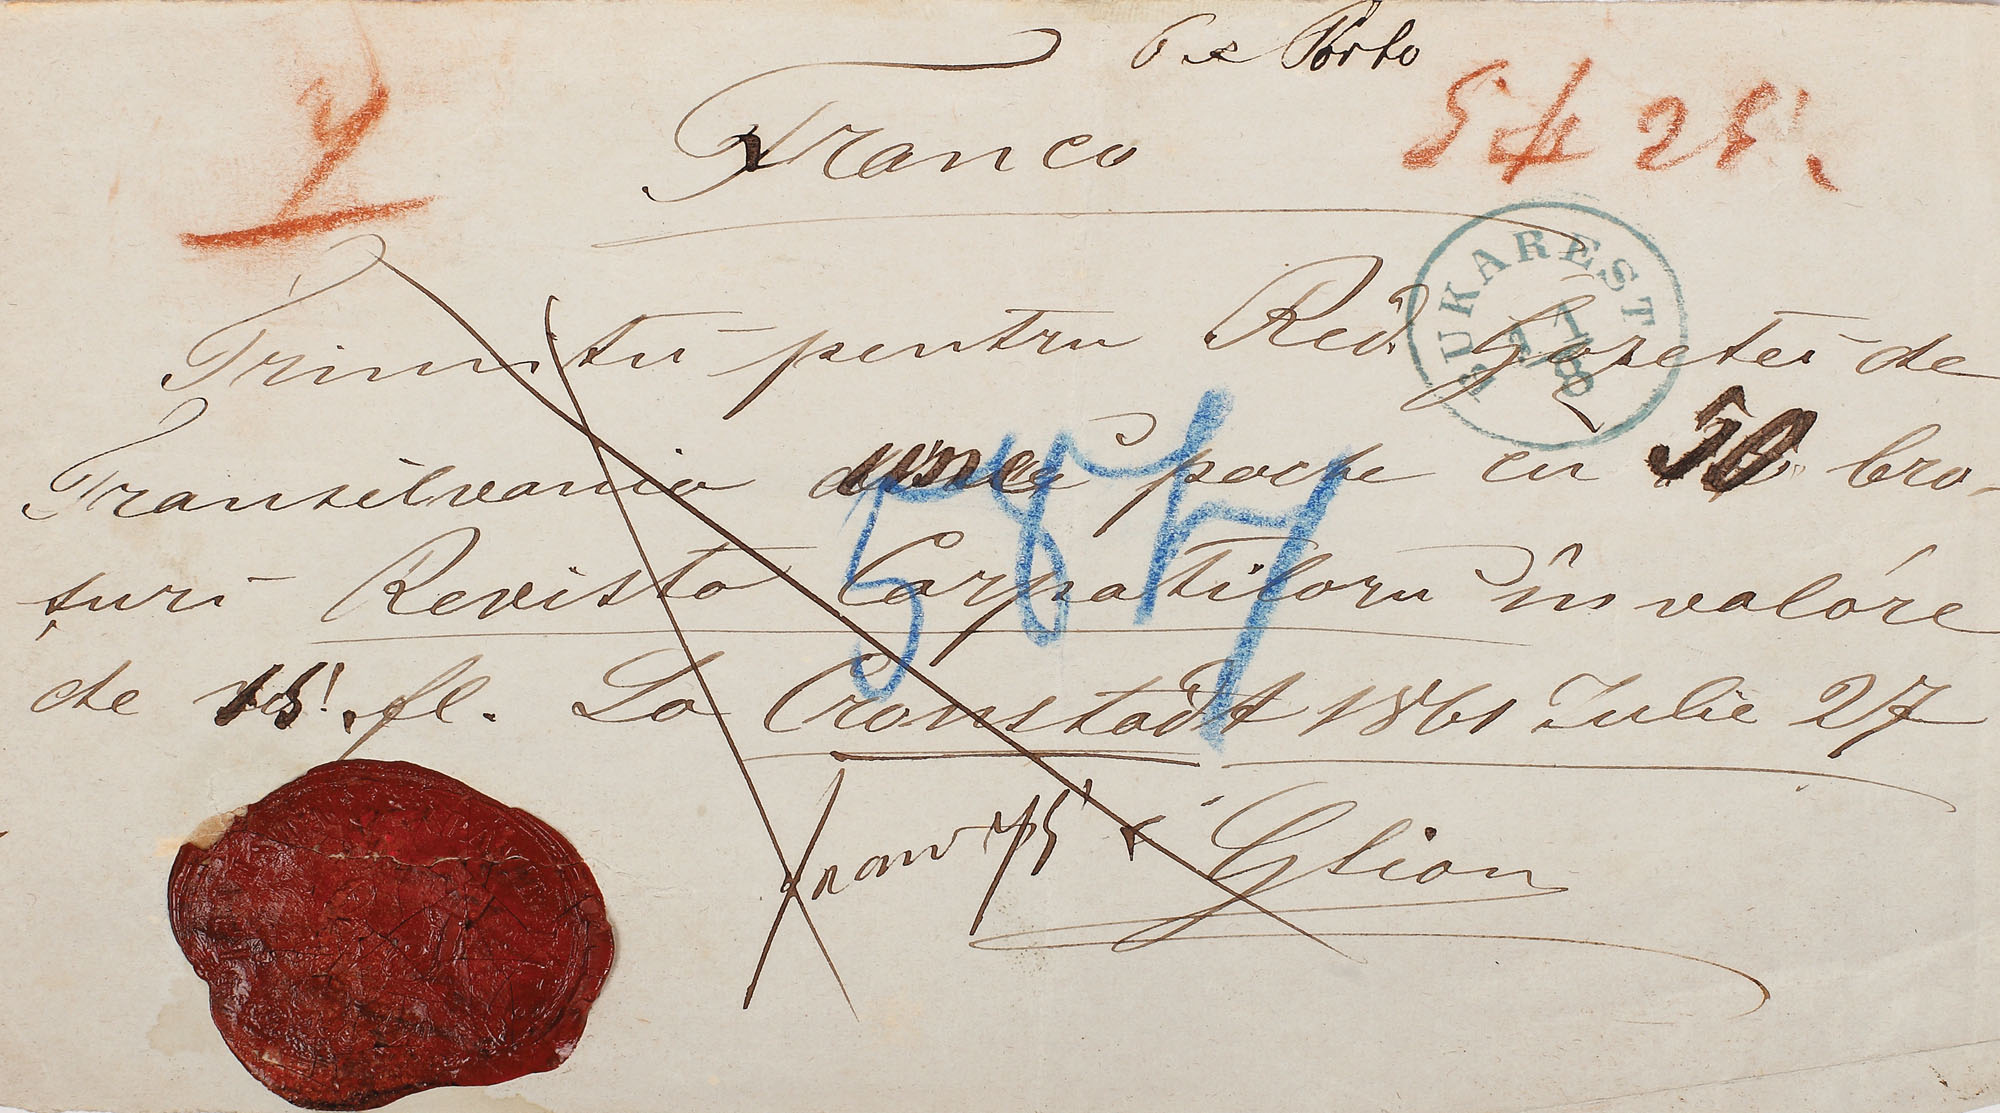 Porto
Franco
BUKAREST
11/8
Trimitu pentru Red. Gazetei de
Transilvania pacte cu 50 bro-
șuri Revista Carpatiloru în valóre
de 15 fl. La Cronstadt 1861 Iulie 27
587